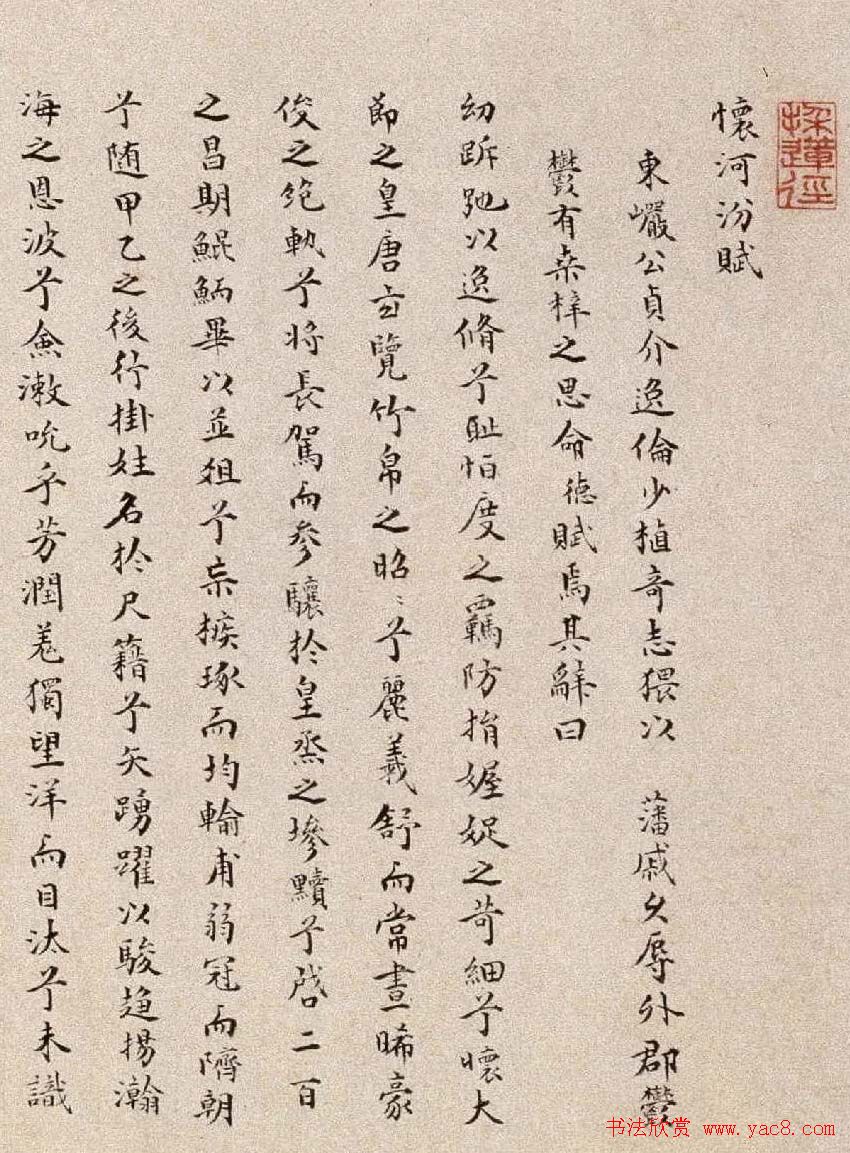 採蓮徑
懷河汾賦
東巖公貞介逸倫少植奇志猥以 藩戚久辱外郡鬱
鬱有桑梓之思命德賦焉其辭曰
幼跅弛以逸脩兮恥怕度之羈防捐婗娖之苛細兮懷大
節之皇唐古覽竹帛之昭〻兮麗義舒而常晝晞豪
俊之絕軌兮將長駕而參驤於皇烝之墋黷兮啓二百
之昌期鯤鮞畢以並徂兮柰掞琢而均輪甫弱冠而隮朝
兮随甲乙之後行掛姓名於尺籍兮矢踴躍以駿趨揚瀚
海之恩波兮僉漱吮乎芳潤羌獨望洋而目汰兮未識
书法欣赏 www.yac8.com